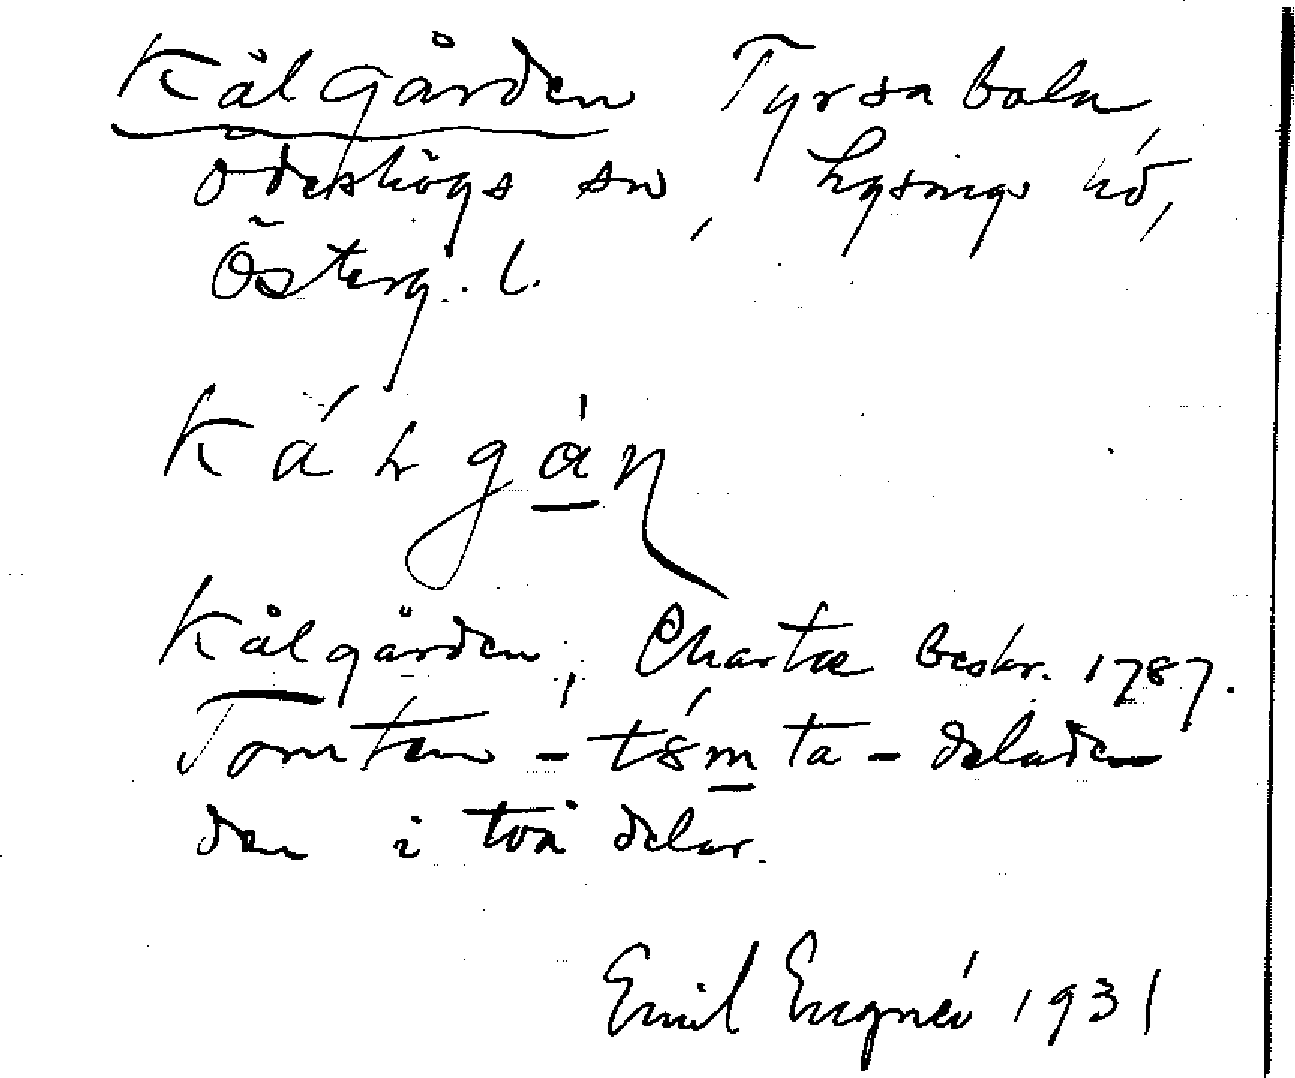 Kålgården Tyrsabola
Ödeshögs sn, Lysings hd,
Österg. l.
Kålgården, Chartæ beskr. 1787.
Tomten - - delade
den i två delar.
Emil Engnér 1931